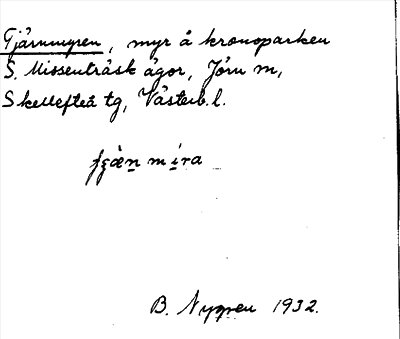 Tjärnmyren, myr å kronoparken
S. Missenträsk ägor, Jörn m,
Skellefteå tg, Västerb. l.
B. Nygren 1932.